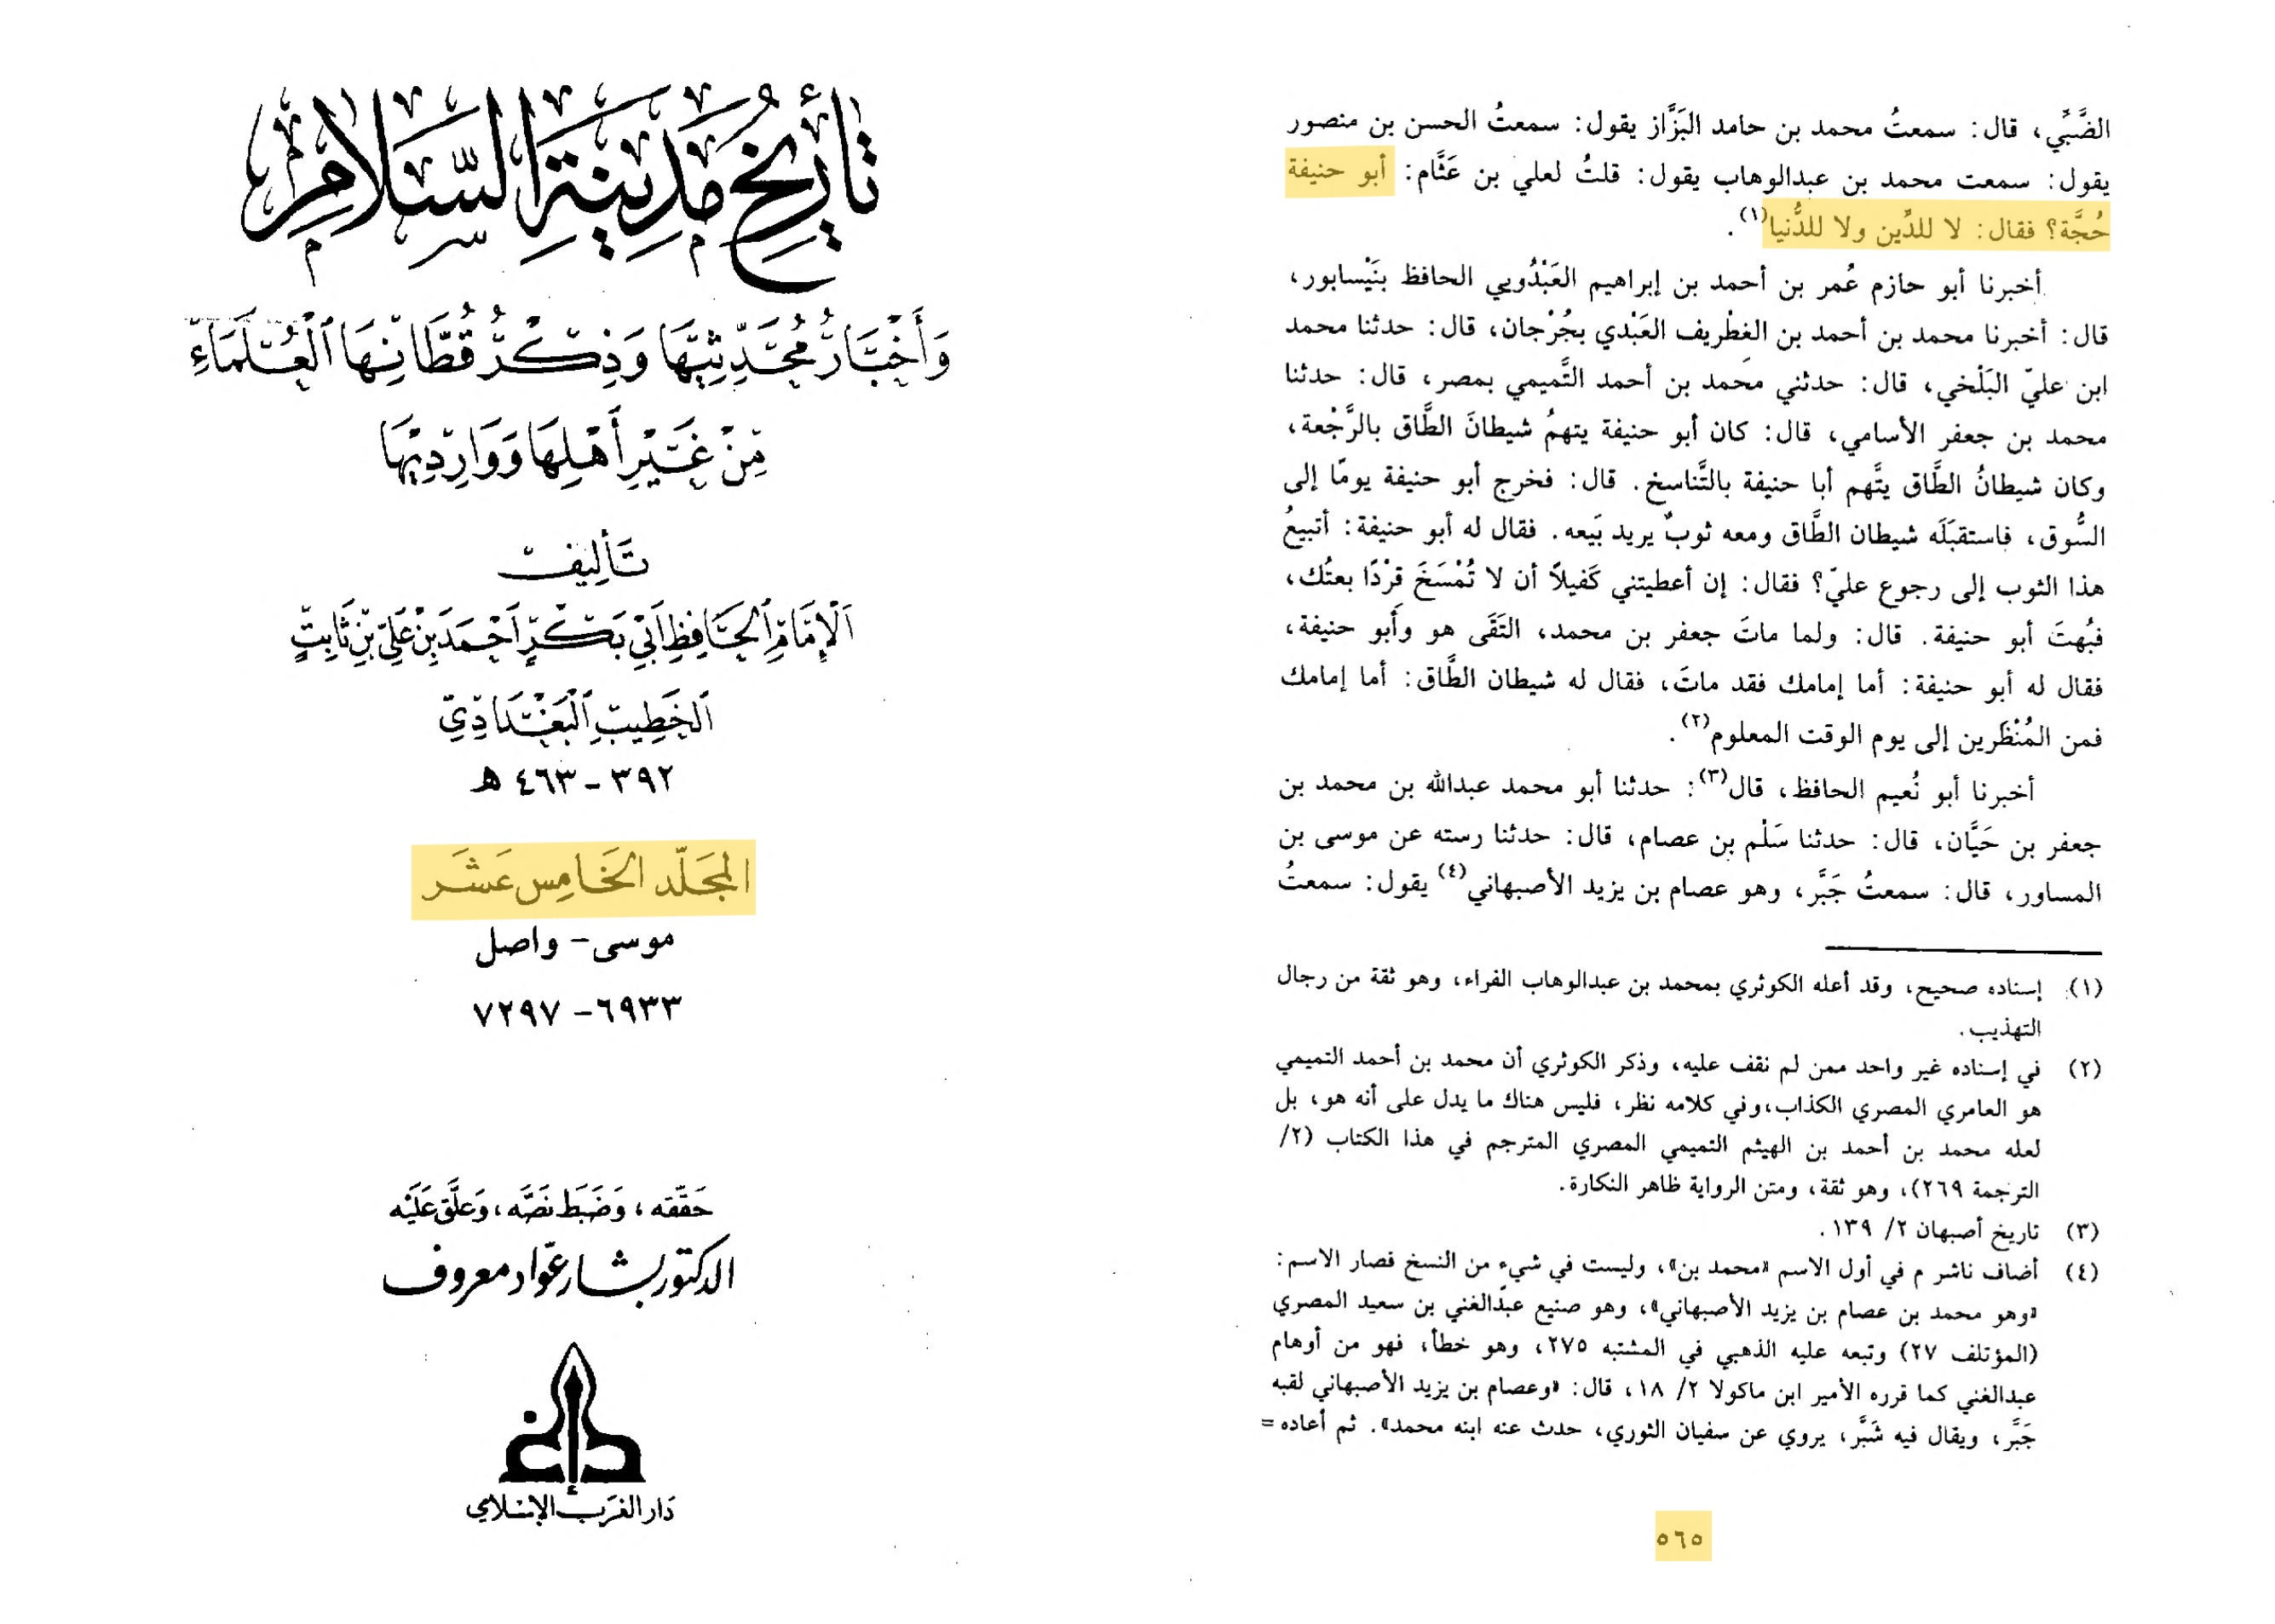 تأريخ مدينة السلام
وَأَخْبَارُ مُحَدِّثِيهَا وَذِكْرُ قُطَّانِهَا الْعُلَمَاءِ
مِنْ غَيْرِ أَهْلِهَا وَوَارِدِيهَا
تَأليف
الْإِمَامِ الْحَافِظِ أَبِي بَكْرٍ أَحْمَدَ بْنِ عَلِيِّ بْنِ ثَابِتٍ
الْخَطِيبِ الْبَغْدَادِيِّ
٣٩٢ - ٤٦٣ هـ
المجَلّد الخَامِس عَشَر
موسى - واصل
٦٩٣٣ - ٧٢٩٧
حَقّقه، وَضَبَط نَصَّه، وَعلَّق عَلَيْه
الدكتور بشار عوّاد معروف
دَار الغَرب الإسْلامي
الضَّبِّي، قال: سمعتُ محمد بن حامد البَزَّاز يقول: سمعتُ الحسن بن منصور
يقول: سمعت محمد بن عبدالوهاب يقول: قلتُ لعلي بن عَثَّام: أبو حنيفة
حُجَّة؟ فقال: لا للدِّين ولا للدُّنيا(١).
أخبرنا أبو حازم عُمر بن أحمد بن إبراهيم العَبْدُويي الحافظ بنَيْسابور،
قال: أخبرنا محمد بن أحمد بن الغطْريف العَبْدي بجُرْجان، قال: حدثنا محمد
ابن عليّ البَلْخي، قال: حدثني محمد بن أحمد التَّميمي بمصر، قال: حدثنا
محمد بن جعفر الأسامي، قال: كان أبو حنيفة يتهمُ شيطانَ الطَّاق بالرَّجْعة،
وكان شيطانُ الطَّاق يتَّهم أبا حنيفة بالتَّناسخ. قال: فخرج أبو حنيفة يومًا إلى
السُّوق، فاستقبَلَه شيطان الطَّاق ومعه ثوبٌ يريد بَيعه. فقال له أبو حنيفة: أتبيعُ
هذا الثوب إلى رجوع عليّ؟ فقال: إن أعطيتني كَفيلاً أن لا تُمْسَخَ قِرْدًا بعتُك،
فبُهتَ أبو حنيفة. قال: ولما ماتَ جعفر بن محمد، التَقَى هو وأبو حنيفة،
فقال له أبو حنيفة: أما إمامك فقد ماتَ، فقال له شيطان الطَّاق: أما إمامك
فمن المُنْظَرين إلى يوم الوقت المعلوم(٢).
أخبرنا أبو نُعيم الحافظ، قال(٣): حدثنا أبو محمد عبدالله بن محمد بن
جعفر بن حَيَّان، قال: حدثنا سَلْم بن عصام، قال: حدثنا رسته عن موسى بن
المساور، قال: سمعتُ جَبَّر، وهو عصام بن يزيد الأصبهاني(٤) يقول: سمعتُ
(١) إسناده صحيح، وقد أعله الكوثري بمحمد بن عبدالوهاب الفراء، وهو ثقة من رجال
التهذيب.
(٢) في إسناده غير واحد ممن لم نقف عليه، وذكر الكوثري أن محمد بن أحمد التميمي
هو العامري المصري الكذاب، وفي كلامه نظر، فليس هناك ما يدل على أنه هو، بل
لعله محمد بن أحمد بن الهيثم التميمي المصري المترجم في هذا الكتاب (٢/
الترجمة ٢٦٩)، وهو ثقة، ومتن الرواية ظاهر النكارة.
(٣) تاريخ أصبهان ٢/ ١٣٩.
(٤) أضاف ناشر م في أول الاسم «محمد بن»، وليست في شيءٍ من النسخ فصار الاسم:
«وهو محمد بن عصام بن يزيد الأصبهاني»، وهو صنيع عبدالغني بن سعيد المصري
(المؤتلف ٢٧) وتبعه عليه الذهبي في المشتبه ٢٧٥، وهو خطأ، فهو من أوهام
عبدالغني كما قرره الأمير ابن ماكولا ٢/ ١٨، قال: «وعصام بن يزيد الأصبهاني لقبه
جَبَّر، ويقال فيه شَبَّر، يروي عن سفيان الثوري، حدث عنه ابنه محمد». ثم أعاده =
٥٦٥